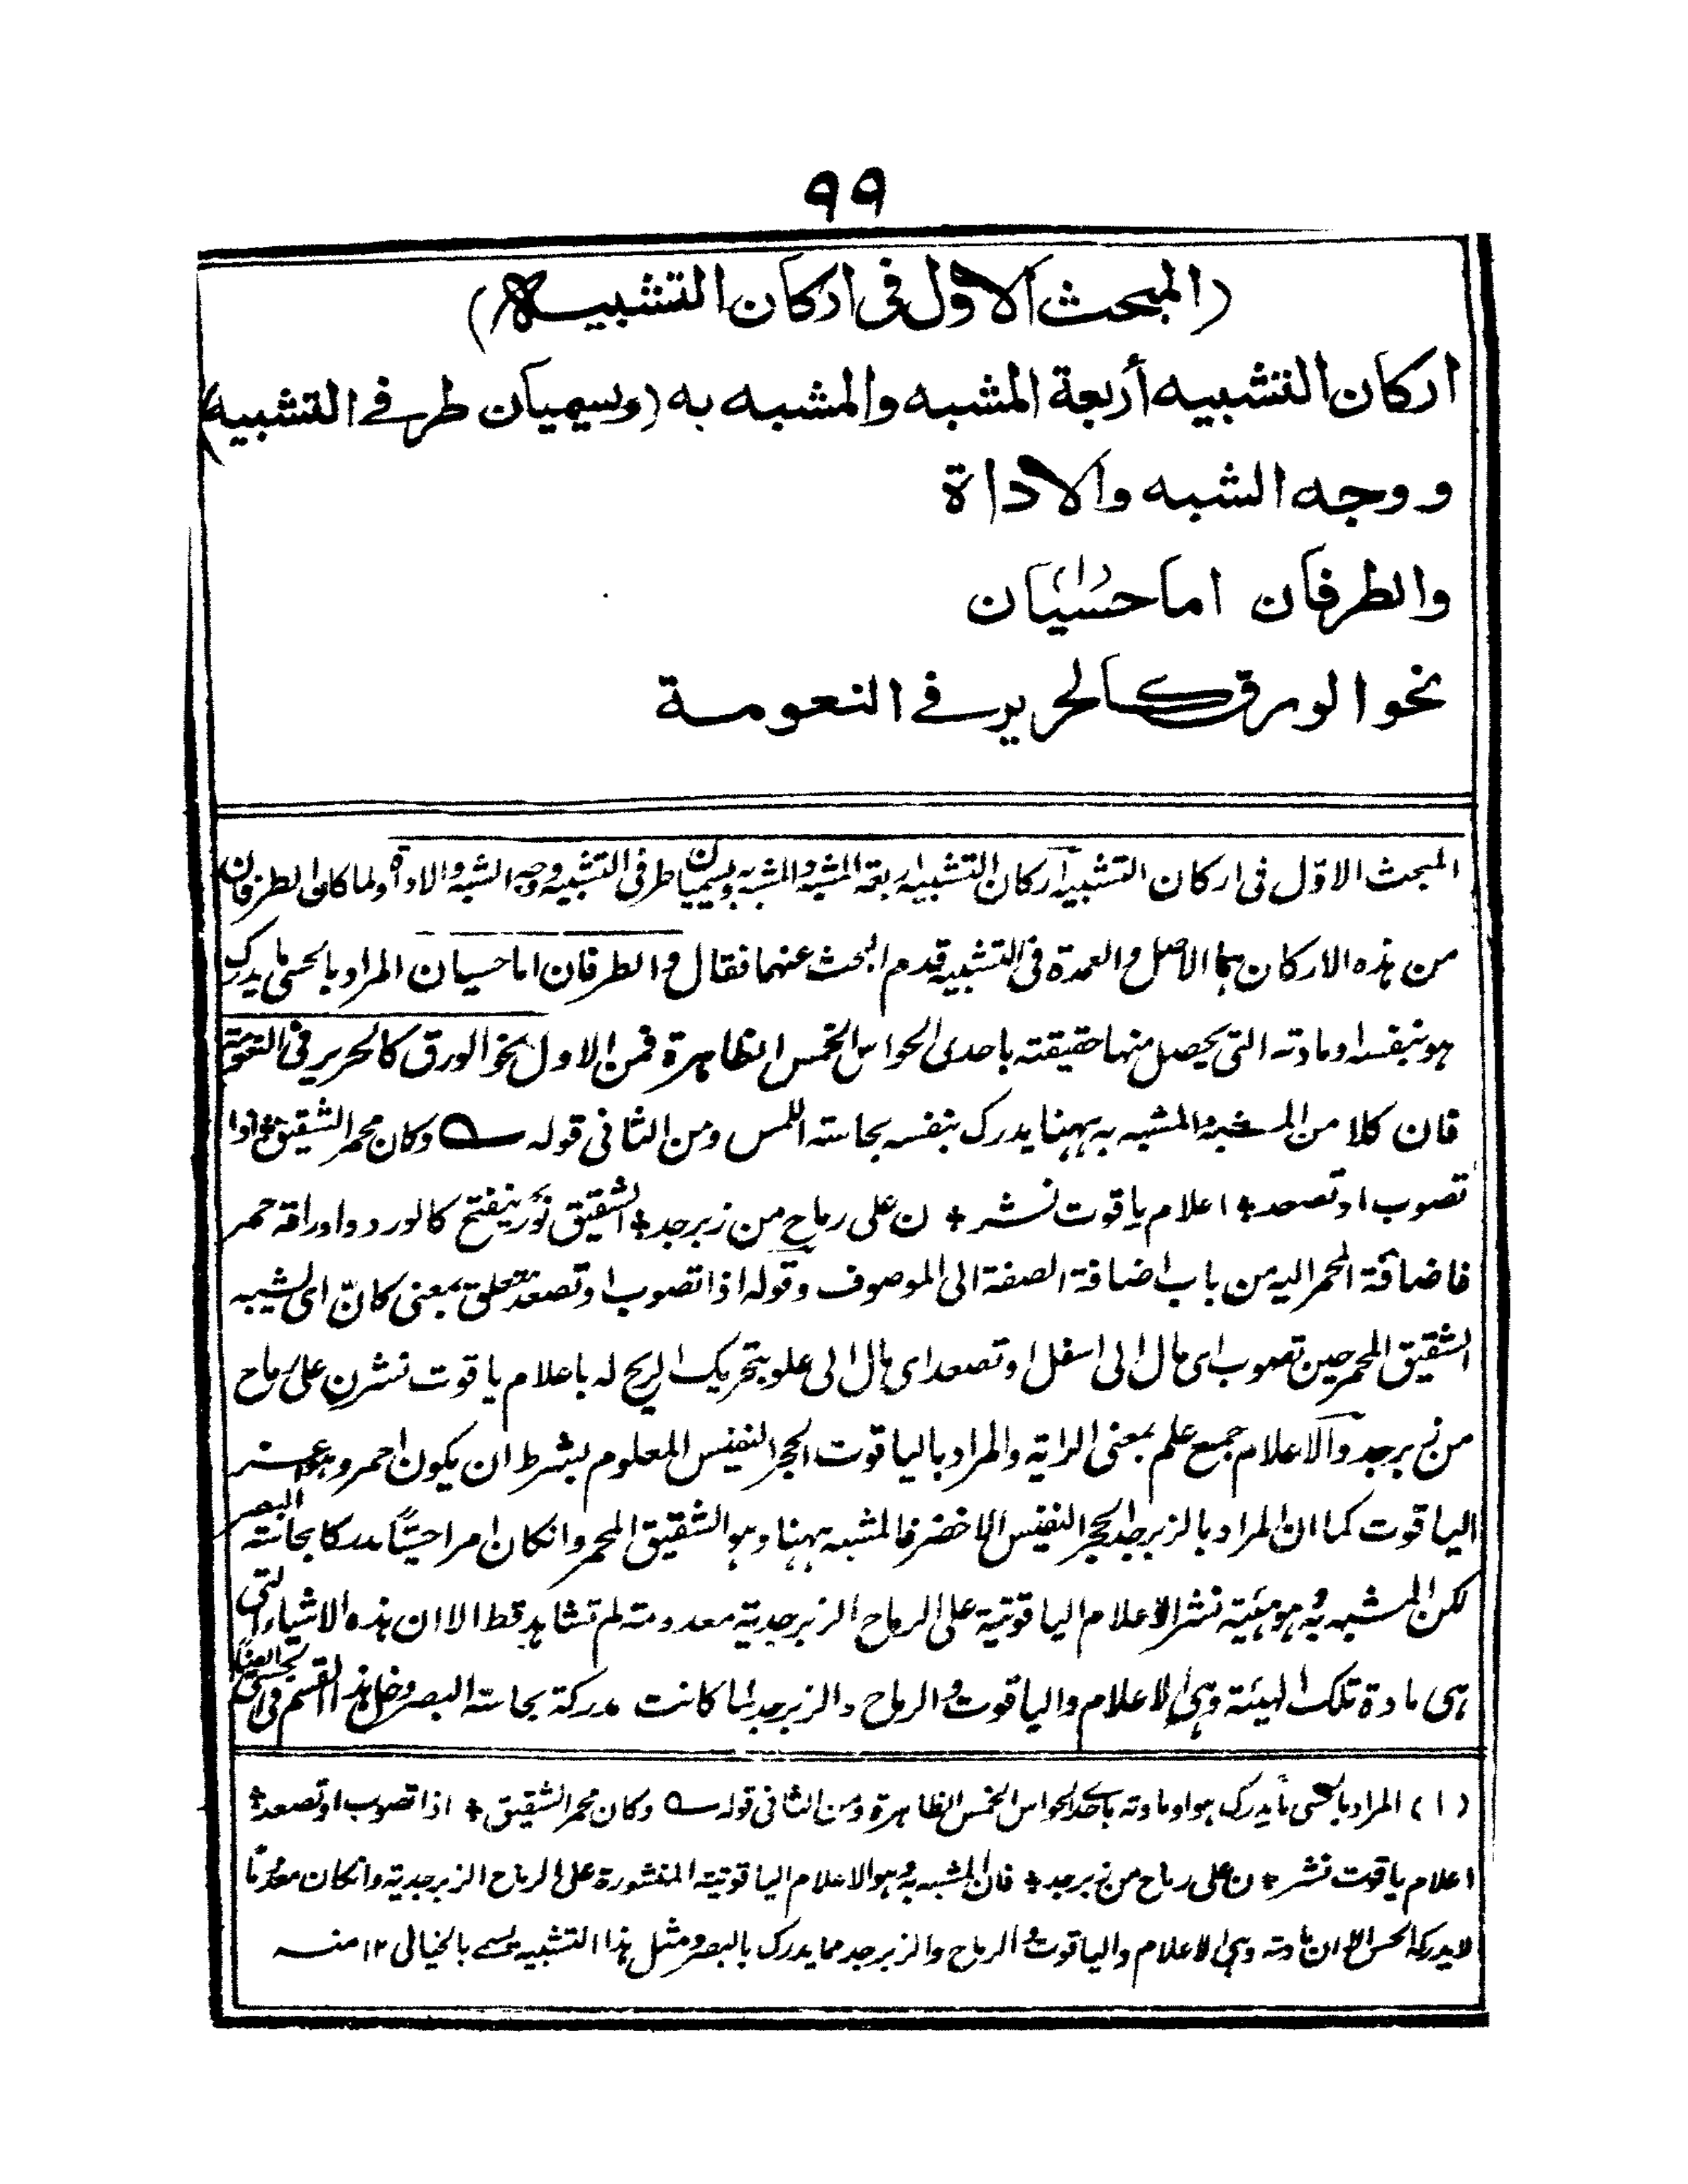 ٩٩
(المبحث الاول فى اركان التشبيه)
اركان التشبيه أربعة المشبه والمشبه به (ويسميان طرفى التشبيه)
ووجه الشبه والاداة
والطرفان اما حسيان (١)
نحو الورق كالحرير فى النعومة
المبحث الاوّل فى اركان التشبيه اركان التشبيه اربعة المشبه والمشبه به ويسميان طرفى التشبيه ووجه الشبه والاداة ولما كان الطرفان
من هذه الاركان هما الاصل والعمدة فى التشبيه قدم البحث عنهما فقال والطرفان اما حسيان المراد بالحسى ما يدرك
هو بنفسه او مادته التى يحصل منها حقيقته باحدى الحواس الخمس الظاهرة فمن الاول نحو الورق كالحرير فى النعومة
فان كلا من المشبه والمشبه به ههنا يدرك بنفسه بحاسته اللمس ومن الثانى قوله ؎ وكان محمر الشقيق * اذا
تصوب او تصعد * اعلام ياقوت نشر * ن على رماح من زبرجد * الشقيق نَوْر ينفتح كالورد واوراقه حمر
فاضافة المحمر اليه من باب اضافة الصفة الى الموصوف وقوله اذا تصوب او تصعد متعلق بمعنى كانّ اى يشبه
الشقيق المحمر حين تصوب اى مال الى اسفل او تصعد اى مال الى علو بتحريك الريح له باعلام ياقوت نشرن على رماح
من زبرجد والاعلام جمع علم بمعنى الراية والمراد بالياقوت الحجر النفيس المعلوم بشرط ان يكون احمر وهو اعز
الياقوت كما ان المراد بالزبرجد الحجر النفيس الاخضر فالمشبه ههنا وهو الشقيق المحمر وانكان امرا حسيًّا مدركا بحاسته البصر
لكن المشبه به وهو هيئية نشر الاعلام الياقوتية على الرماح الزبرجدية معدومته لم تشاهد قط الا ان هذه الاشياء التى
هى مادة تلك الهيئة وهى الاعلام والياقوت والرماح والزبرجد لما كانت مدركة بحاسته البصر دخل هذا القسم فى الحسى ايضًا
(١) المراد بالحسى ما يدرك هو او مادته باحدى الحواس الخمس الظاهرة ومن الثانى قوله ؎ وكان محمر الشقيق * اذا تصوب او تصعد *
اعلام ياقوت نشر * ن على رماح من زبرجد * فان المشبه به وهو الاعلام الياقوتية المنشورة على الرماح الزبرجدية وانكان معدومًا
لا يدركه الحس الا ان مادته وهى الاعلام والياقوت والرماح والزبرجد مما يدرك بالبصر ومثل هذا التشبيه يسمى بالخيالى ١٢ منه